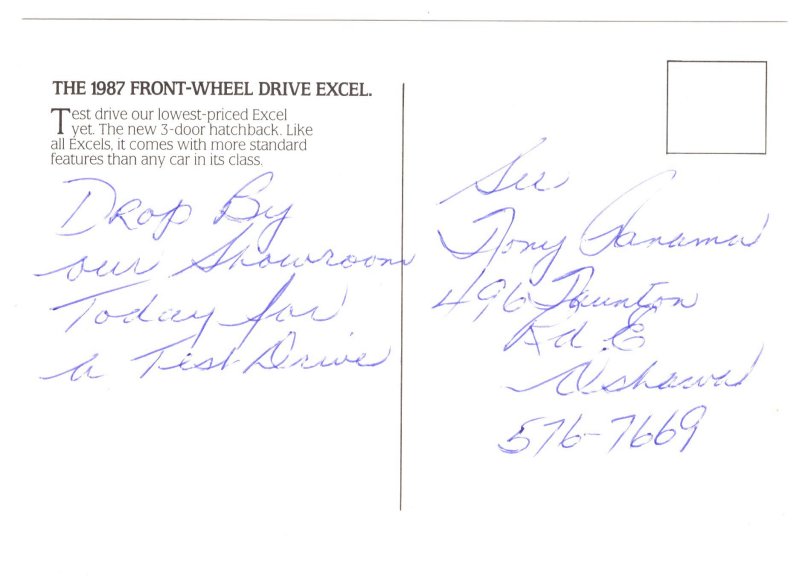 THE 1987 FRONT-WHEEL DRIVE EXCEL.
Test drive our lowest-priced Excel
yet. The new 3-door hatchback. Like
all Excels, it comes with more standard
features than any car in its class.
Drop By
our Showroom
Today for
a Test Drive
See
Tony Panama
496 Taunton
Rd. E
Oshawa
576-7669